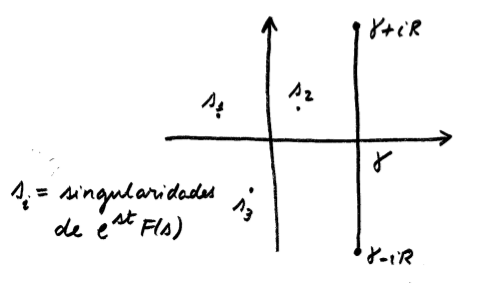 γ+iR
s₁
s₂
γ
sᵢ = singularidades
de eˢᵗ F(s)
s₃
γ-iR